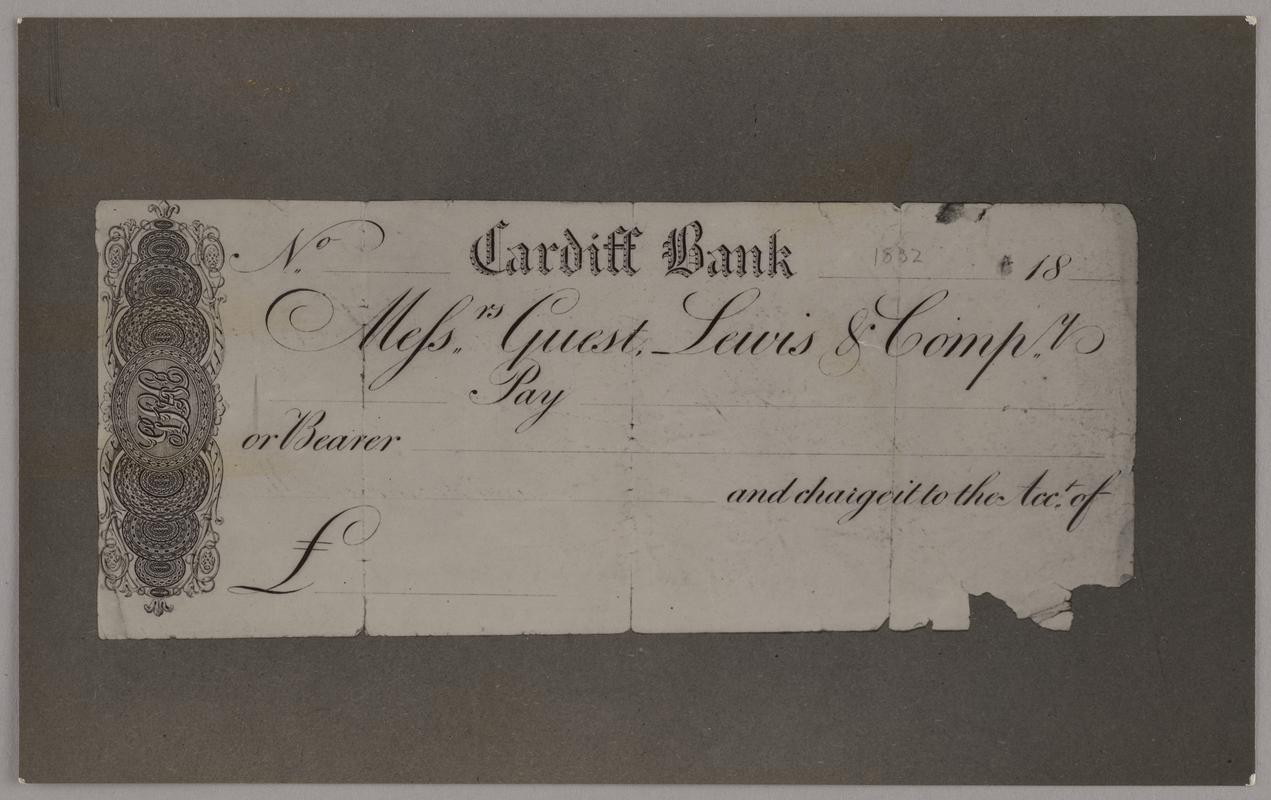 No. Cardiff Bank 1832 18
Mess.rs Guest, Lewis & Comp.y
Pay
or Bearer
and charge it to the Acc.t of
£